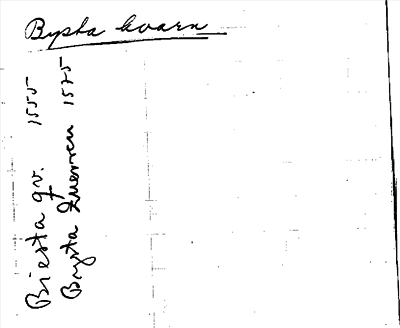 Bysta kvarn
Biesta qv. 1555
Bysta Quernen 1575